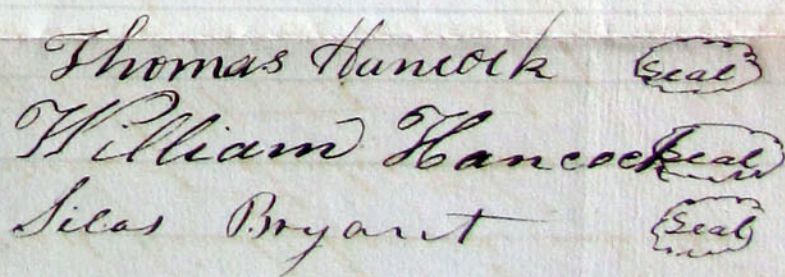 Thomas Huncock Seal
William Hancock Seal
Silas Bryant Seal